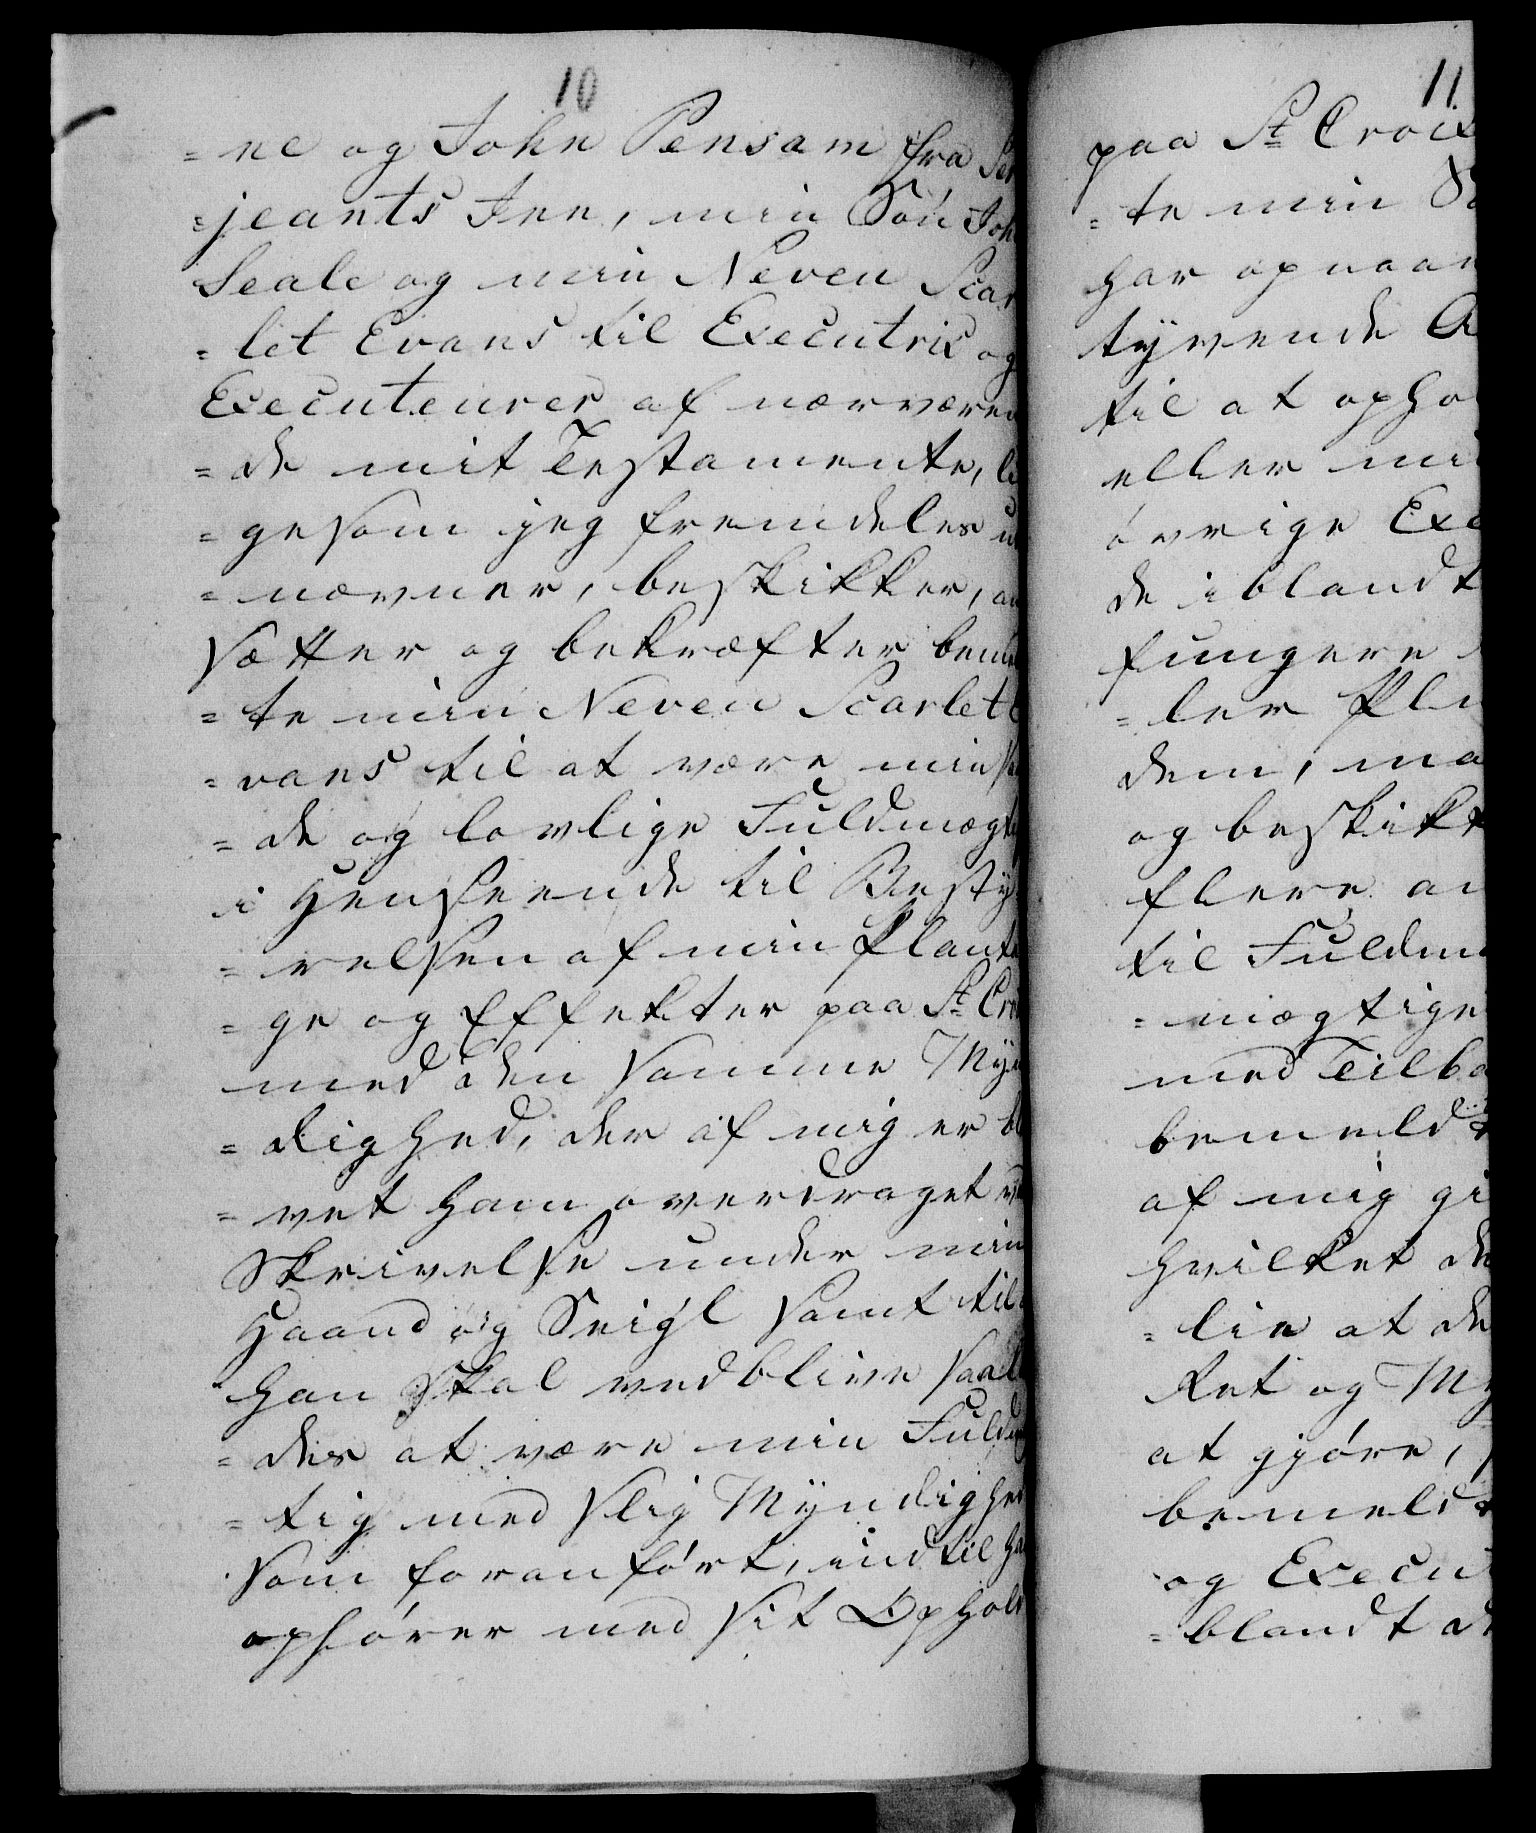 10
= ne og John Pensam fra Ser
= jeants Inn, min Søn Joh
Seale og min Neveu Scar
= let Evans til Executrix og
Executeurer af nærværen
= de mit Testamente, li
= gesom jeg fremdeles u
= nævner, beskikker, an
sætter og bekræfter beme
= te min Neveu Scarlet E
= vans til at være min
= de og lovlige Fuldmægti
i Henseende til Besty
= relsen af min Planta
= ge og Effekter paa St Cro
med den samme Myn
= dighed, der af mig er bl
= vet ham overdraget ved
Skrivelse under min
Haand og Seigl samt til
han skal vedblive saale
= des at være min Fuldm
= tig med slig Myndighed
som foranført, indtil ha
ophører med sit Ophold
11.
paa St Croix
= te min
har opnaae
tyvende A
til at opho
eller mi
øvrige Exe
de iblandt
fungere
= ler Plu
dem, ma
og beskikk
flere an
til Fuldm
= mægtige
med Tilba
bemeldt
af mig gi
hvilket de
= lie at de
Ret og My
at gjøre,
bemeldt
og Execut
= blandt de